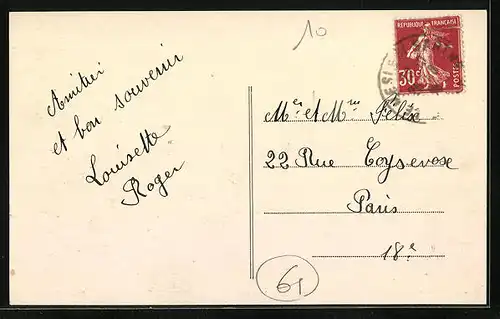 10
REPUBLIQUE FRANÇAISE
30c
POSTES
Amitiés
et bon souvenir
Louisette
Roger
Mr et Mme Felix
22 Rue Coysevox
Paris
18e
61